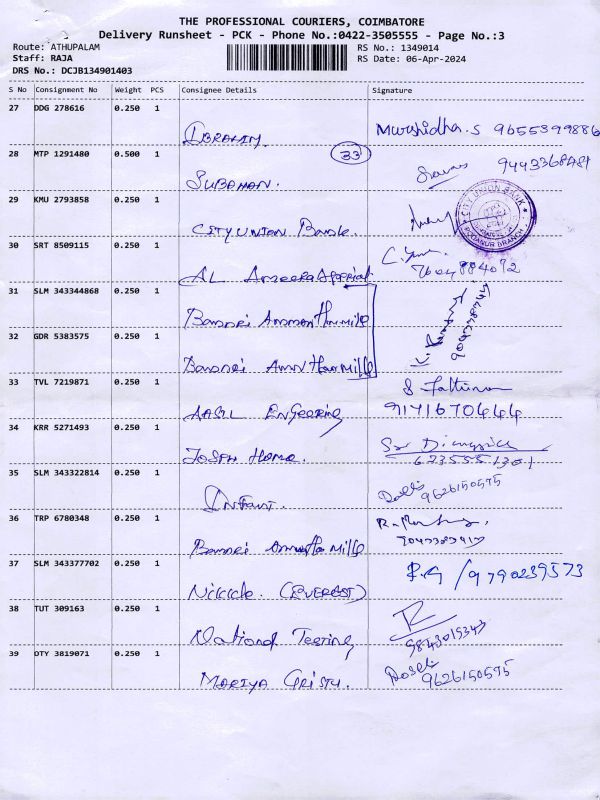 THE PROFESSIONAL COURIERS, COIMBATORE
Delivery Runsheet - PCK - Phone No.:0422-3505555 - Page No.:3
Route: ATHUPALAM RS No.: 1349014
Staff: RAJA RS Date: 06-Apr-2024
DRS No.: DCJB134901403
S No Consignment No Weight PCS Consignee Details Signature
27 DDG 278616 0.250 1
IBRAHIM. Murshidha.S 9655399886
28 MTP 1291480 0.500 1 33
SUBAMAN. 9443368481
29 KMU 2793858 0.250 1
CITY UNION Bank. CITY UNION BANK PODANUR BRANCH
30 SRT 8509115 0.250 1
AL Ameera 7604884092
31 SLM 343344868 0.250 1
Bannari Amman Mills
32 GDR 5383575 0.250 1
Bannari Mills
33 TVL 7219871 0.250 1 S. Fathima
AASIL ENGeering 9171670444
34 KRR 5271493 0.250 1
JOSEPH Home. 6235551301
35 SLM 343322814 0.250 1
INFANT. 9626150595
36 TRP 6780348 0.250 1
Bannari Mills
37 SLM 343377702 0.250 1 R.G / 9790239573
(EVEREST)
38 TUT 309163 0.250 1
National Testing 9843015343
39 OTY 3819071 0.250 1
MARIYA CRISTU. 9626150595